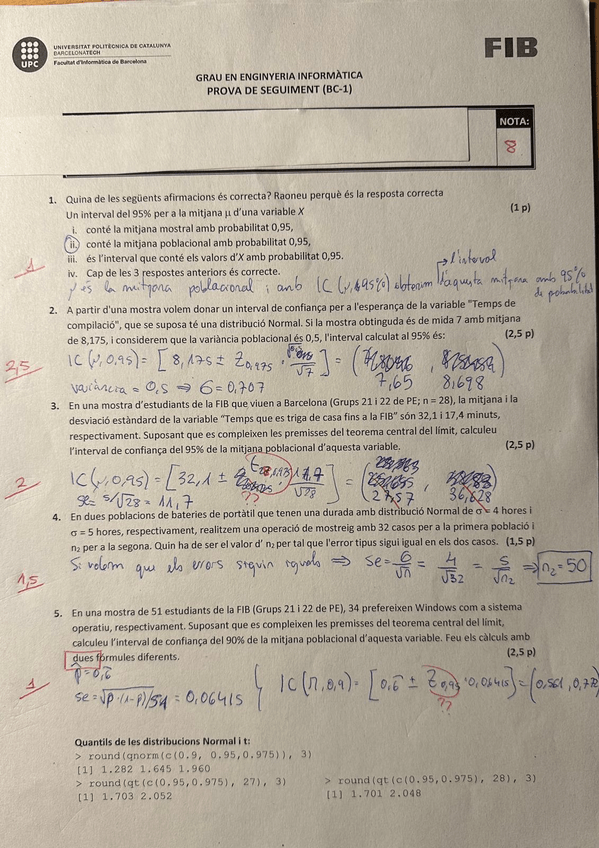 UNIVERSITAT POLITÈCNICA DE CATALUNYA
BARCELONATECH
Facultat d'Informàtica de Barcelona
UPC
FIB
GRAU EN ENGINYERIA INFORMÀTICA
PROVA DE SEGUIMENT (BC-1)
NOTA:
8
1. Quina de les següents afirmacions és correcta? Raoneu perquè és la resposta correcta
Un interval del 95% per a la mitjana µ d'una variable X (1 p)
i. conté la mitjana mostral amb probabilitat 0,95,
ii. conté la mitjana poblacional amb probabilitat 0,95,
iii. és l'interval que conté els valors d'X amb probabilitat 0.95.
iv. Cap de les 3 respostes anteriors és correcte.
1
l'interval
µ és la mitjana poblacional i amb IC(µ, 95%) obtenim d'aquesta mitjana amb 95%
de probabilitat
2. A partir d'una mostra volem donar un interval de confiança per a l'esperança de la variable "Temps de
compilació", que se suposa té una distribució Normal. Si la mostra obtinguda és de mida 7 amb mitjana
de 8,175, i considerem que la variància poblacional és 0,5, l'interval calculat al 95% és: (2,5 p)
2,5
IC(µ, 0,95) = [8,175 ± Z0,975 · /√7] = ( , )
7,65 8,698
variància = 0,5 ⇒ σ = 0,707
3. En una mostra d'estudiants de la FIB que viuen a Barcelona (Grups 21 i 22 de PE; n = 28), la mitjana i la
desviació estàndard de la variable "Temps que es triga de casa fins a la FIB" són 32,1 i 17,4 minuts,
respectivament. Suposant que es compleixen les premisses del teorema central del límit, calculeu
l'interval de confiança del 95% de la mitjana poblacional d'aquesta variable. (2,5 p)
2
IC(µ, 0,95) = [32,1 ± /√28] = ( , )
se = s/√28 = 11,7 ?? 27,57 36,628
4. En dues poblacions de bateries de portàtil que tenen una durada amb distribució Normal de σ = 4 hores i
σ = 5 hores, respectivament, realitzem una operació de mostreig amb 32 casos per a la primera població i
n2 per a la segona. Quin ha de ser el valor d' n2 per tal que l'error tipus sigui igual en els dos casos. (1,5 p)
1,5
Si volem que els errors siguin iguals ⇒ se = σ/√n = 4/√32 = 5/√n2 ⇒ n2 = 50
5. En una mostra de 51 estudiants de la FIB (Grups 21 i 22 de PE), 34 prefereixen Windows com a sistema
operatiu, respectivament. Suposant que es compleixen les premisses del teorema central del límit,
calculeu l'interval de confiança del 90% de la mitjana poblacional d'aquesta variable. Feu els càlculs amb
dues fórmules diferents. (2,5 p)
1
p = 0,6
se = √p·(1-p)/51 = 0,06415 IC(Π, 0,9) = [0,6 ± Z0,95 · 0,06415] = (0,561, 0,772
??
Quantils de les distribucions Normal i t:
> round(qnorm(c(0.9, 0.95,0.975)), 3)
[1] 1.282 1.645 1.960
> round(qt(c(0.95,0.975), 27), 3) > round(qt(c(0.95,0.975), 28), 3)
[1] 1.703 2.052 [1] 1.701 2.048